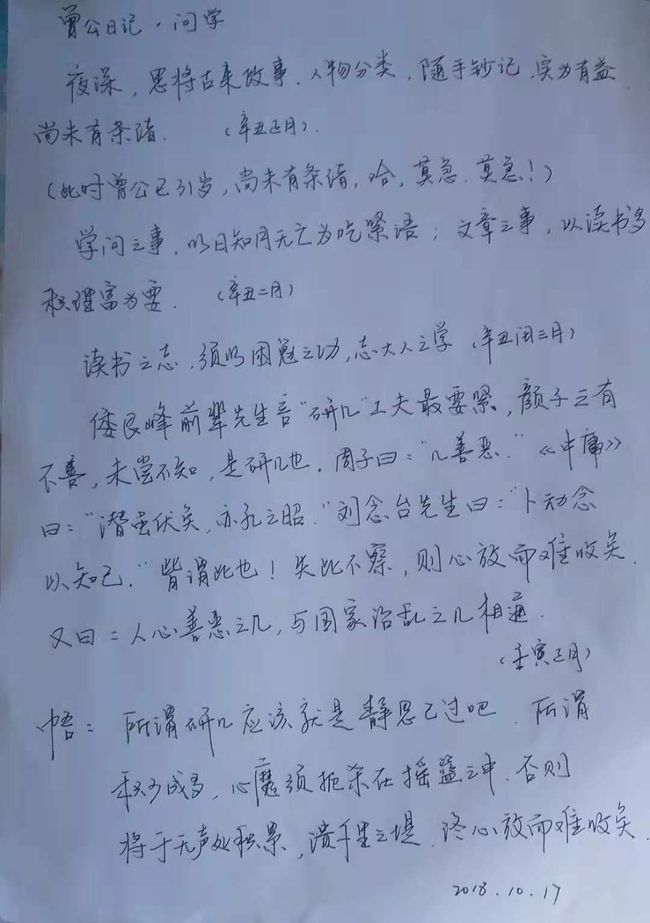 曾公日记·问学
夜深，思将古来政事、人物分类，随手钞记，实为有益，
尚未有条绪。（辛丑正月）.
（此时曾公已31岁，尚未有条绪，哈，莫急.莫急！）
学问之事，以日知月无亡为吃紧语；文章之事，以读书多
积理富为要.（辛丑二月）
读书之志，须以困勉之功，志大人之学（辛丑闰三月）
倭艮峰前辈先生言"研几"工夫最要紧，颜子之有
不善，未尝不知，是研几也.周子曰："几善恶."《中庸》
曰："潜虽伏矣，亦孔之昭."刘念台先生曰："卜动念
以知几."皆谓此也！失此不察，则心放而难收矣.
又曰：人心善恶之几，与国家治乱之几相通.
（壬寅正月）
悟：所谓研几应该就是静思己过吧.所谓
积少成多，心魔须扼杀在摇篮之中.否则
将于无声处积累，溃千里之堤.终心放而难收矣.
2018.10.17